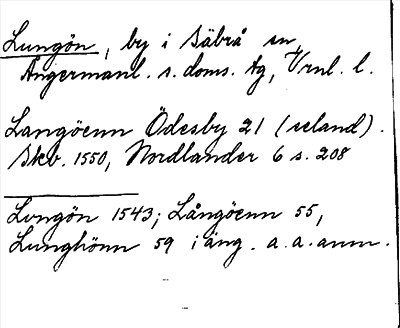 Lungön, by i Säbrå sn,
Ångermanl. s. doms. tg, Vrnl. l.
Langöenn Ödesby 21 (seland).
Skb. 1550, Nordlander 6 s. 208
Lvngön 1543; Långöenn 55,
Lunghönn 59 i äng. a. a. anm.